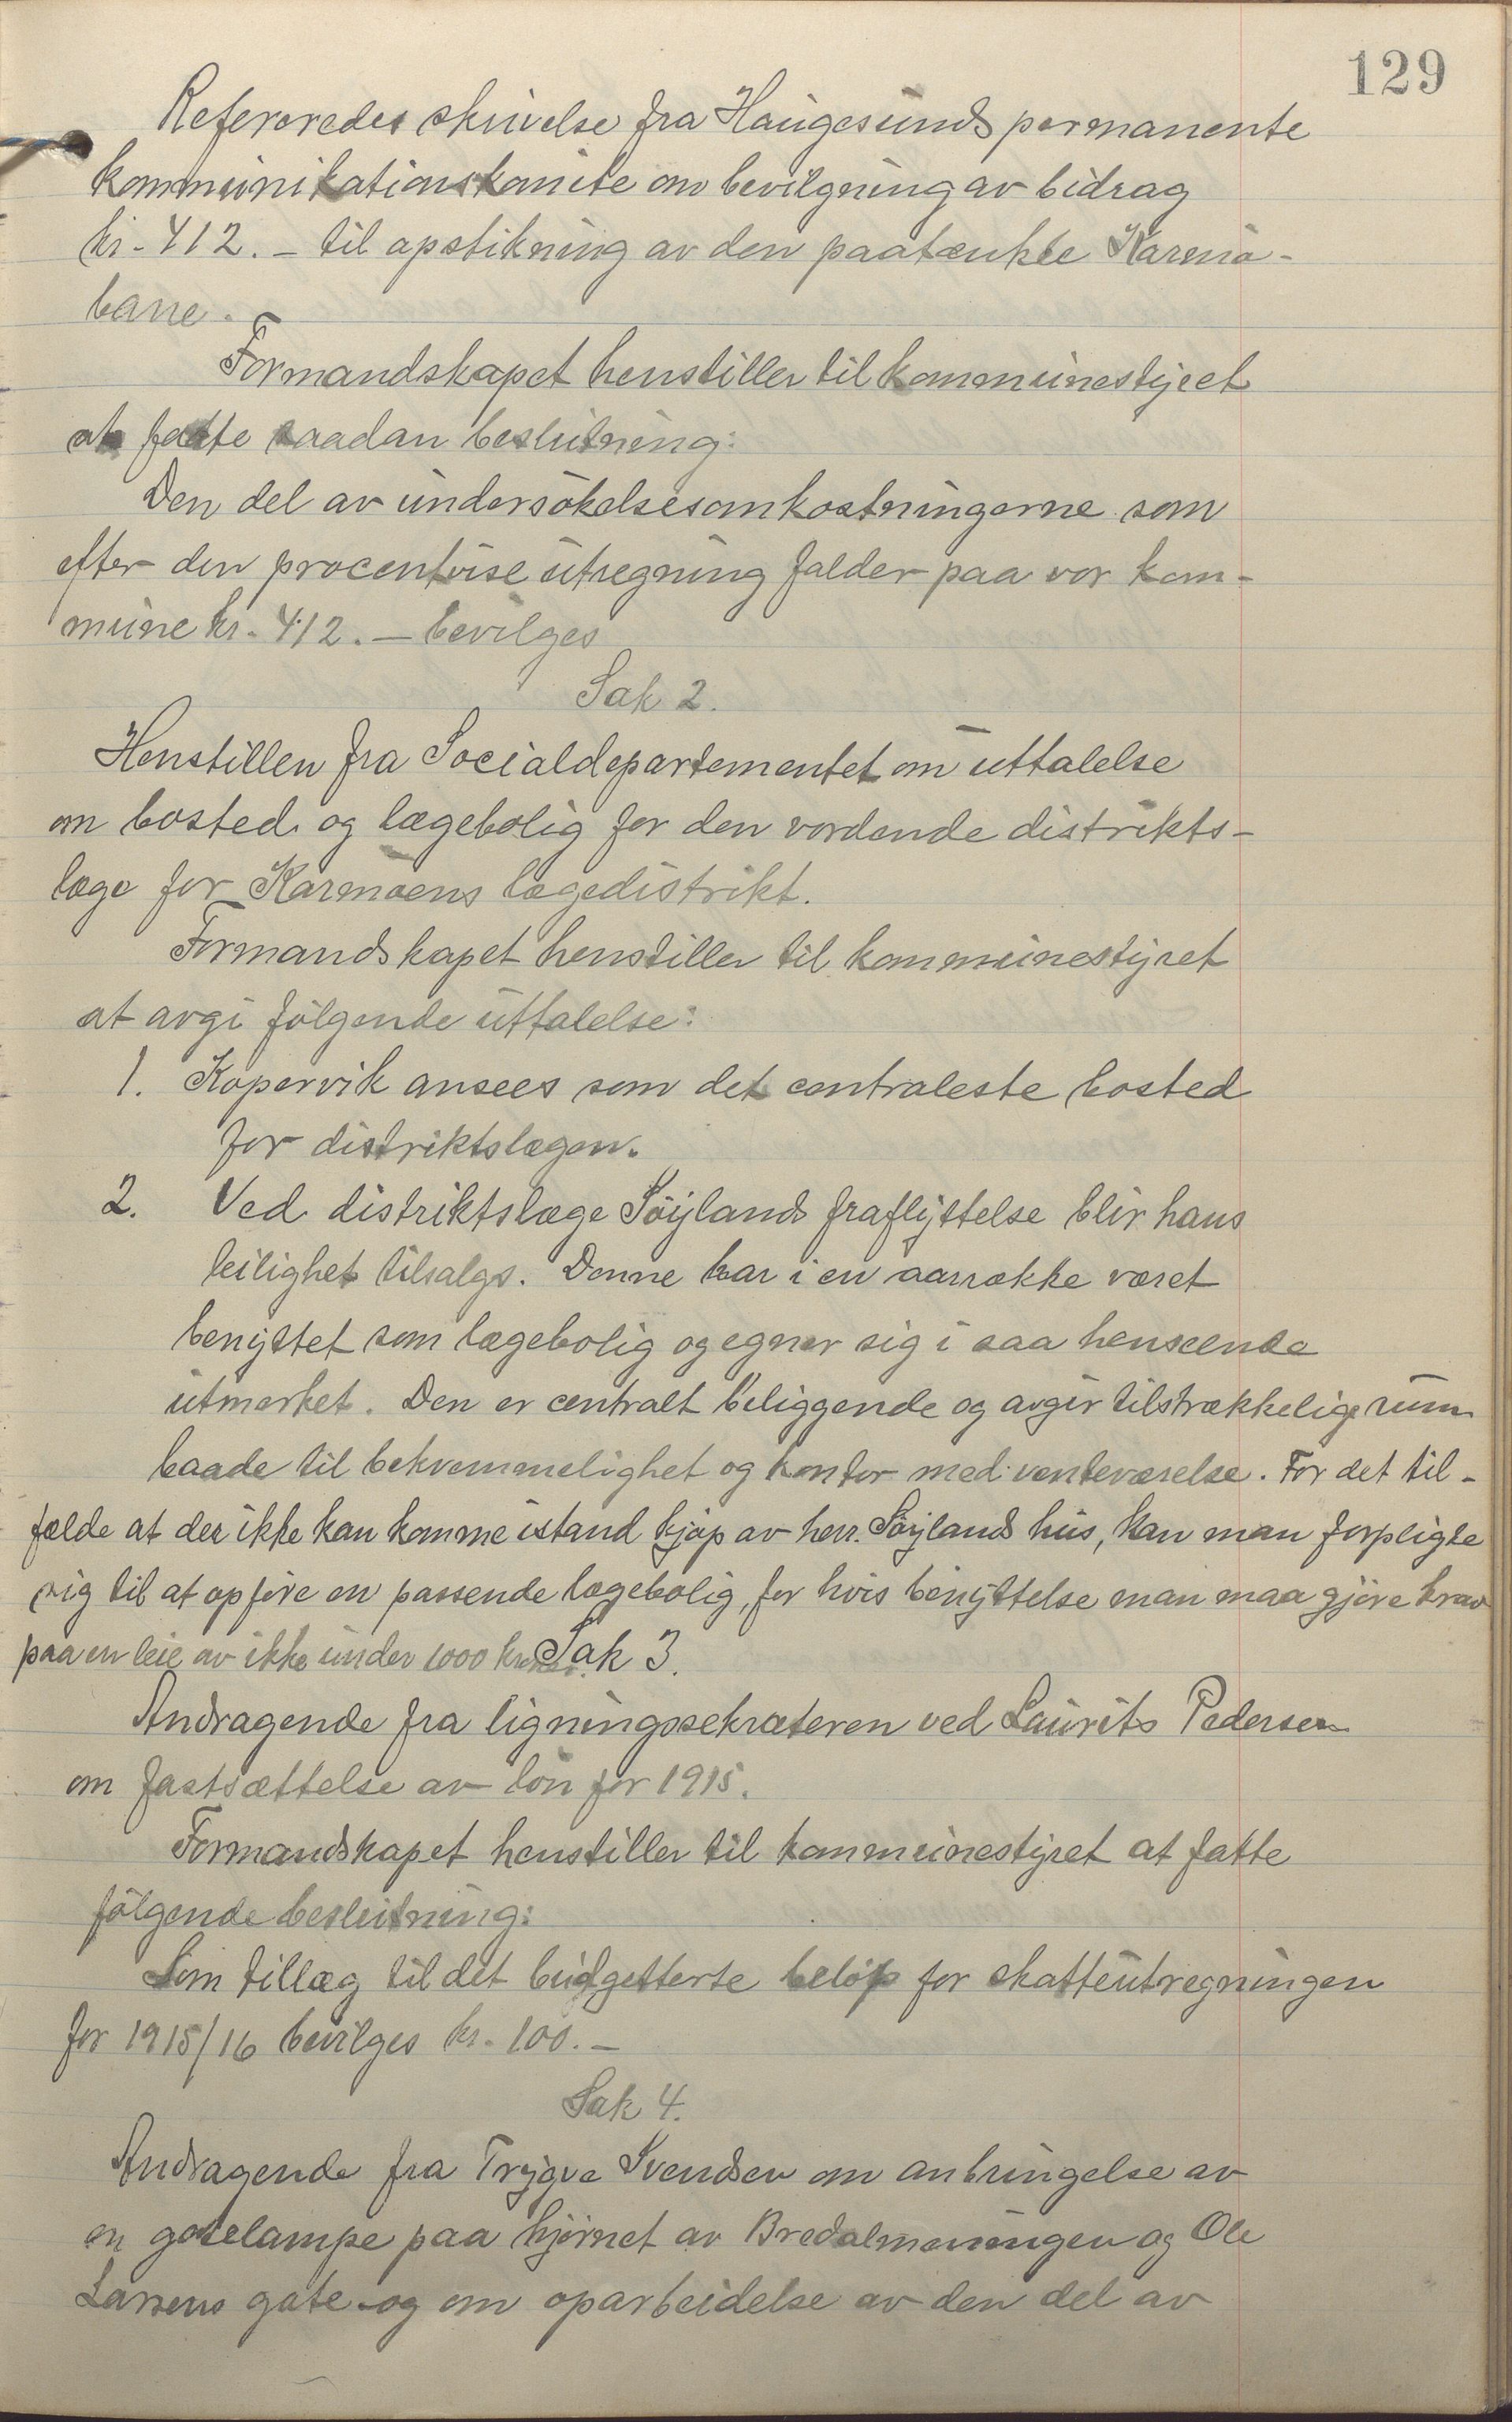 129
Refereredes skrivelse fra Haugesunds permanente
kommunikationskomite om bevilgning av bidrag
kr. 412.- til opstikning av den paatænkte Karmø-
bane.
Formandskapet henstiller til kommunestyret
at fatte saadan beslutning:
Den del av undersøkelsesomkostningerne som
efter den procentvise utregning falder paa vor kom-
mune kr. 412.- bevilges
Sak 2.
Henstillen fra Socialdepartementet om uttalelse
om bosted og lægebolig for den vordende distrikts-
læge for Karmøens lægedistrikt.
Formandskapet henstiller til kommunestyret
at avgi følgende uttalelse:
1. Kopervik ansees som det centraleste bosted
for distriktslægen.
2. Ved distriktslæge Søylands fraflyttelse blir hans
leilighet tilsalgs. Denne har i en aarrække været
benyttet som lægebolig og egner sig i saa henseende
utmerket. Den er centralt beliggende og avgir tilstrækkelige rum
baade til bekvemmelighet og kontor med venteværelse. For det til-
fælde at der ikke kan komme istand kjøp av herr. Søylands hus, kan man forpligte
sig til at opføre en passende lægebolig, for hvis benyttelse man maa gjøre krav
paa en leie av ikke under 1000 kroner. Sak 3.
Andragende fra ligningssekretæren ved Laurits Pedersen
om fastsættelse av løn for 1915.
Formandskapet henstiller til kommunestyret at fatte
følgende beslutning:
Som tillæg til det budgetterte beløp for skatteutregningen
for 1915/16 bevilges kr. 100.-
Sak 4.
Andragende fra Trygve Svendsen om anbringelse av
en gatelampe paa hjørnet av Bredalmenningen og Ole
Larsens gate og om oparbeidelse av den del av